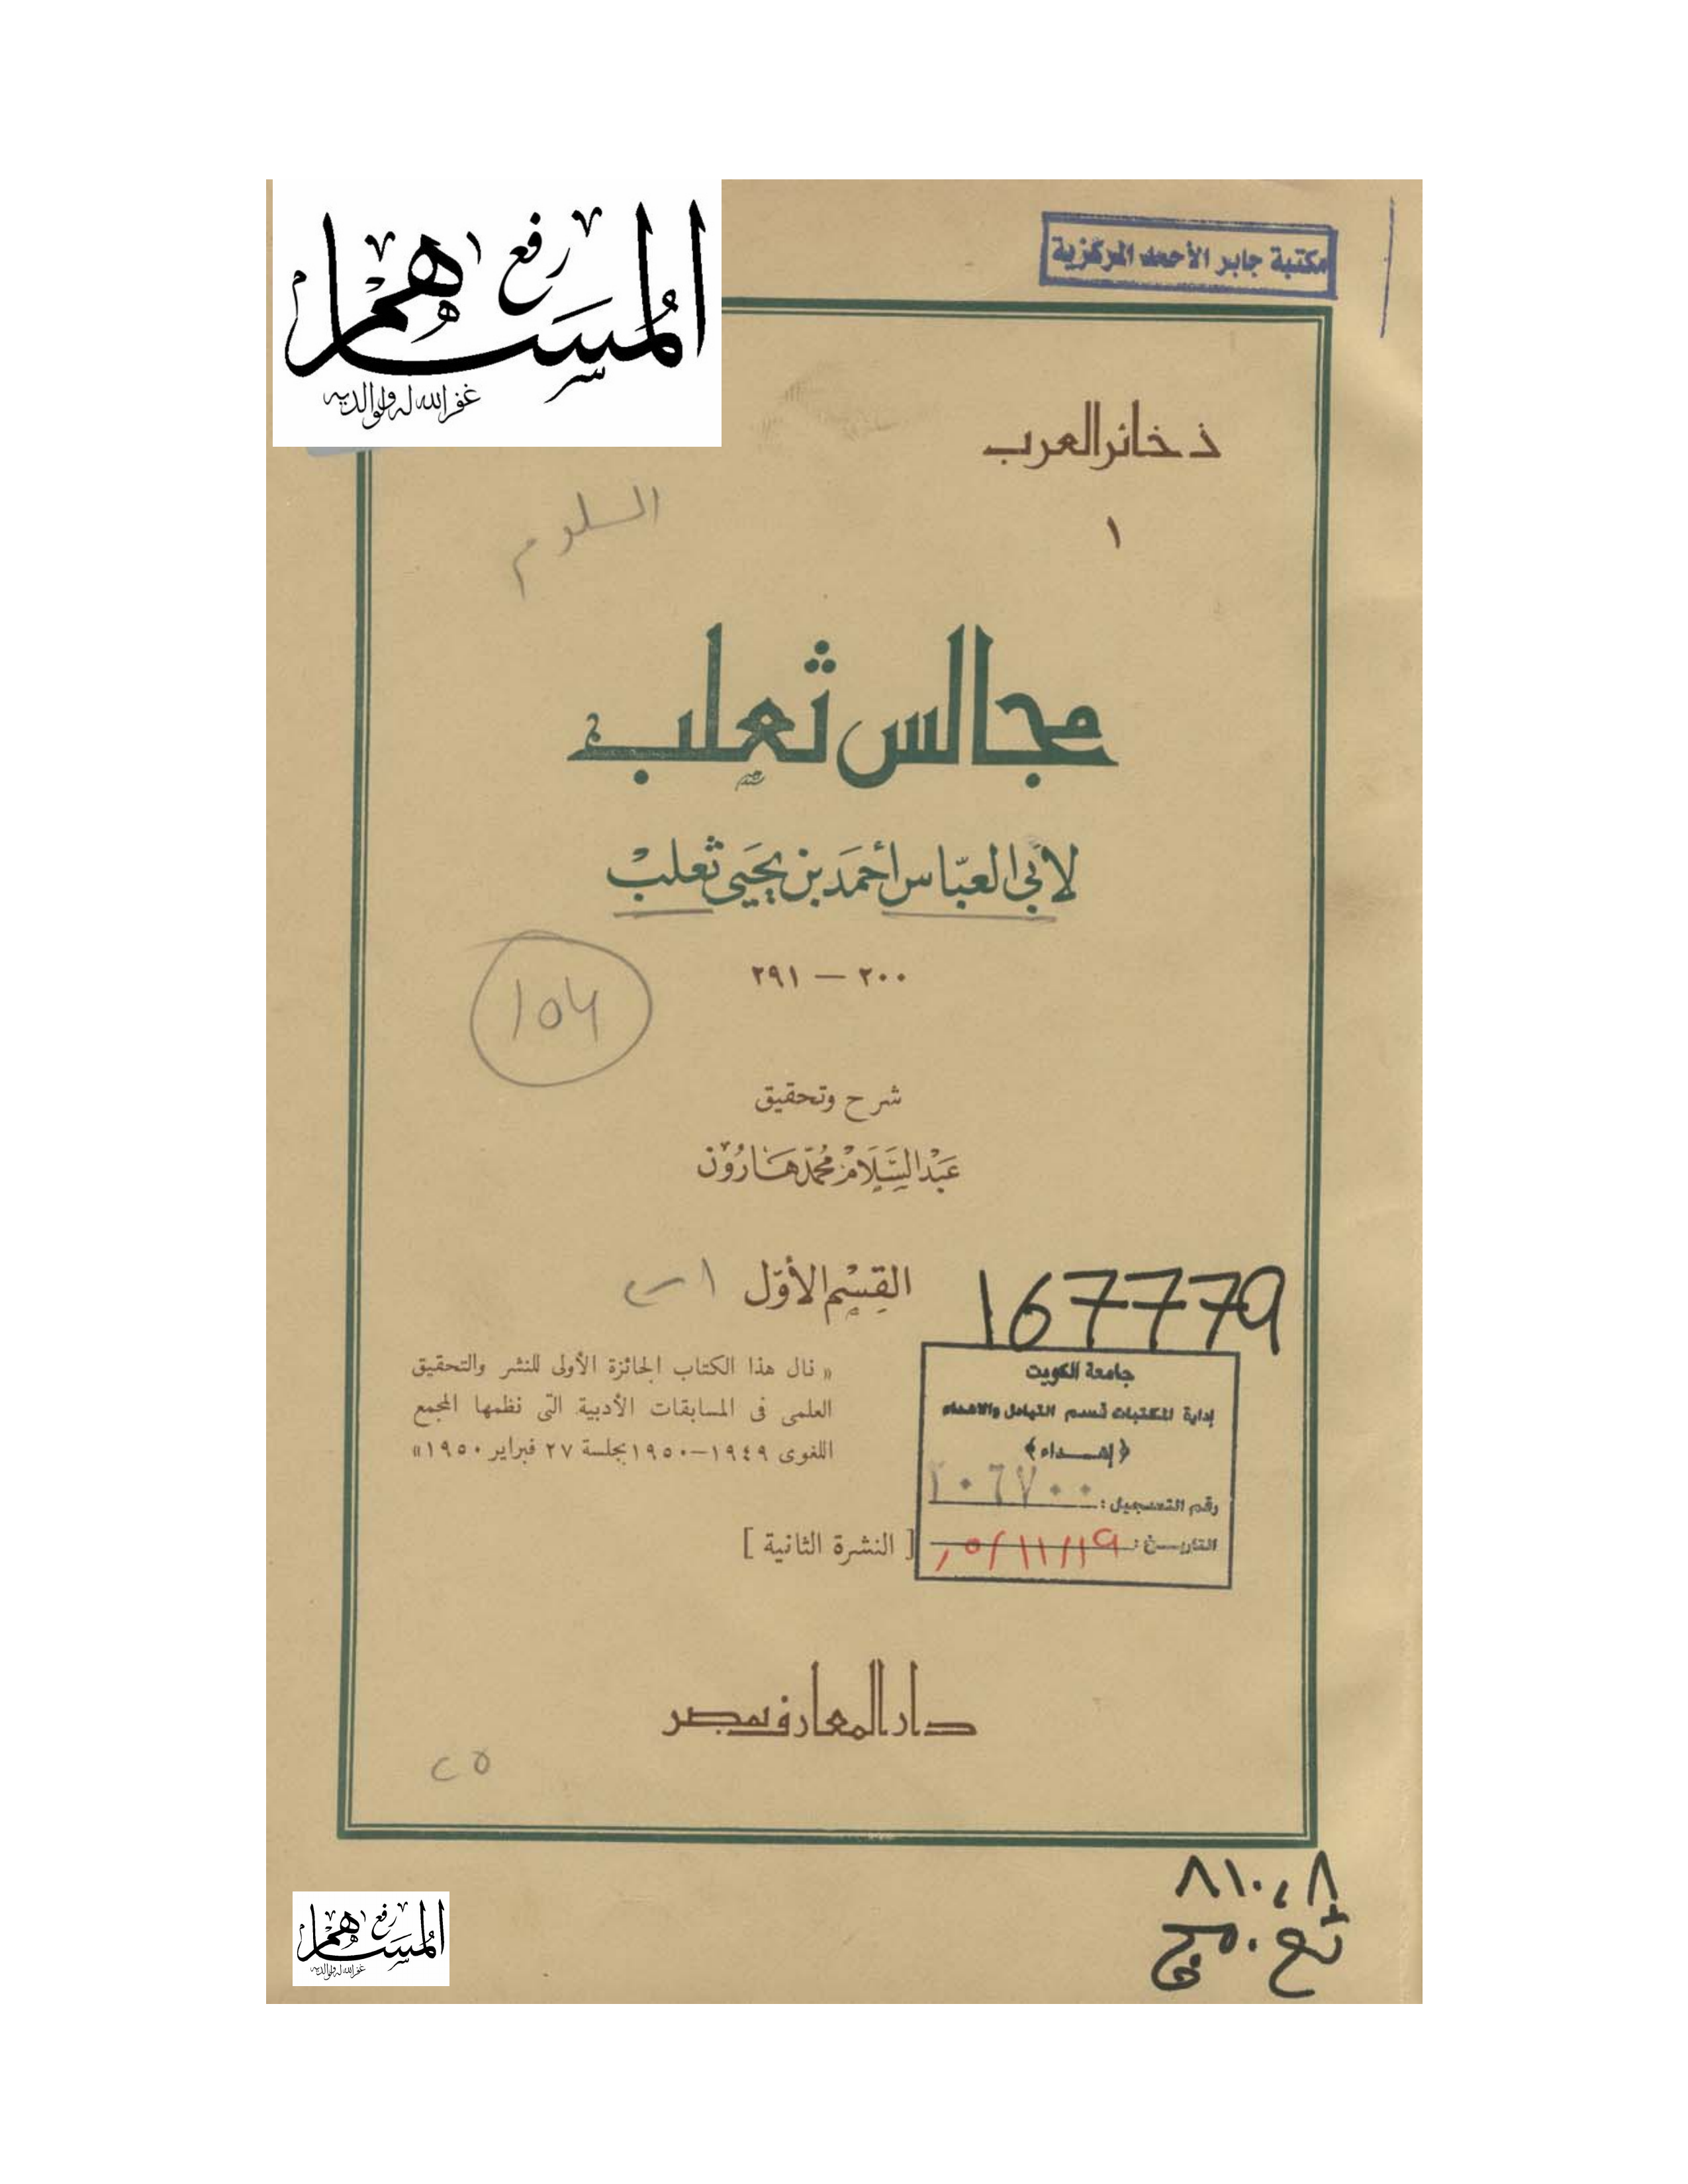 رفع
المساهم
غفر الله له ولوالديه
مكتبة جابر الأحمد المركزية
ذخائر العرب
١
مجالس ثعلب
لأبي العبّاس أحمَد بن يحَيى ثعلبْ
٢٠٠ — ٢٩١
104
شرح وتحقيق
عَبْد السَّلَامْ محُمّد هَارُوْن
القِسْم الأوّل
167779
« نال هذا الكتاب الجائزة الأولى للنشر والتحقيق
العلمى فى المسابقات الأدبية التى نظمها المجمع
اللغوى ١٩٤٩–١٩٥٠ بجلسة ٢٧ فبراير ١٩٥٠»
جامعة الكويت
إدارة المكتبات قسم التبادل والاهداء
﴿إهـــداء﴾
رقم التسجيل:
التاريــخ:
[ النشرة الثانية ]
دار المعارف بمصر
٢٥
٨١٠,٨
ثع . مج
رفع
المساهم
غفر الله له ولوالديه